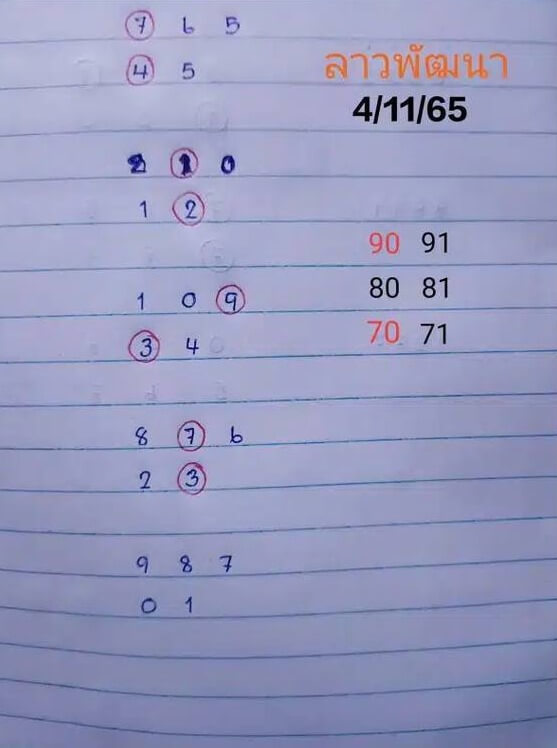 7 6 5
4 5
ลาวพัฒนา
4/11/65
2 1 0
1 2
90 91
80 81
70 71
1 0 9
3 4
8 7 6
2 3
9 8 7
0 1